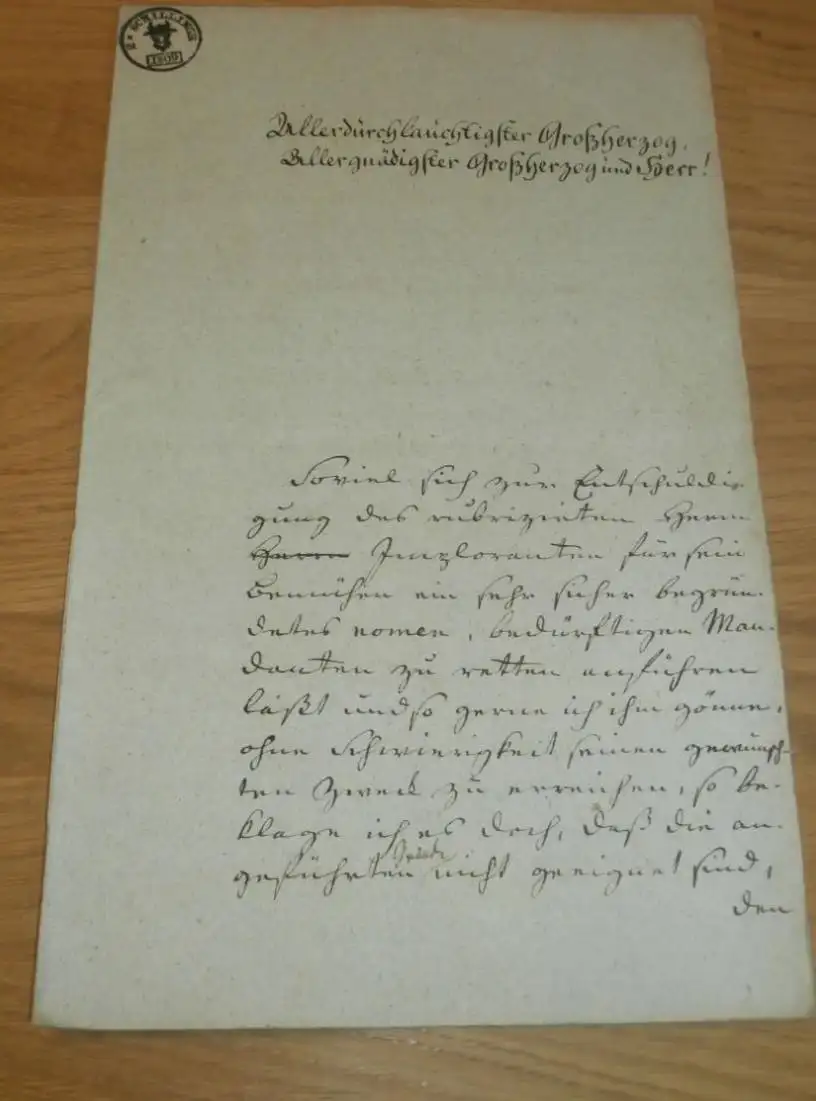 2 * SCHILLINGE
Allerdurchlauchtigster Großherzog,
Allergnädigster Großherzog und Herr!
Soviel sich zur Entschuldi-
gung des rubrizirten Herrn
Herrn Imploranten für sein
Bemühen ein sehr sicher begrün-
detes nomen, bedürftigen Man-
danten zu retten anführen
läßt und so gerne ich ihm gönne,
ohne Schwierigkeit seinen gewünsch-
ten Zweck zu erreichen, so be-
klage ich es doch, daß die an-
geführten nicht geeignet sind,
den